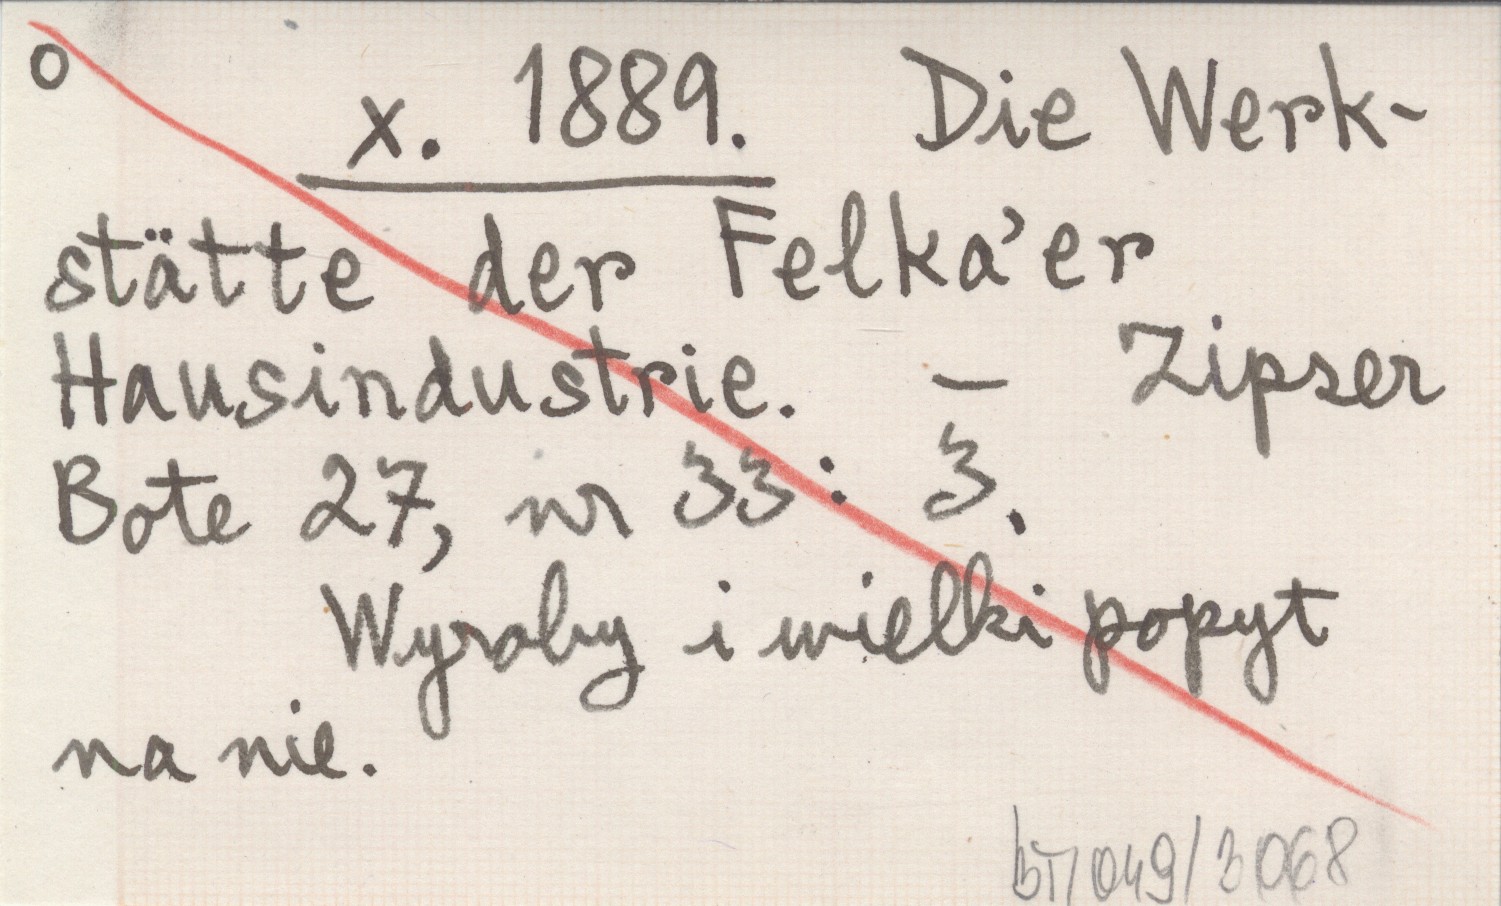 o x. 1889. Die Werk-
stätte der Felka'er
Hausindustrie. – Zipser
Bote 27, nr 33 : 3.
Wyroby i wielki popyt
na nie.
bT/049/3068